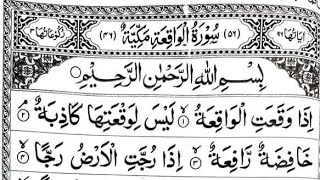 اٰیَاتُهَا ٩٦ (٥٦) سُوْرَةُ الْوَاقِعَةِ مَكِّيَّةٌ (٤٦) رُكُوْعَاتُهَا ٣
بِسْمِ اللهِ الرَّحْمٰنِ الرَّحِيْمِ
اِذَا وَقَعَتِ الْوَاقِعَةُ ۙ١ لَيْسَ لِوَقْعَتِهَا كَاذِبَةٌ ۘ٢
خَافِضَةٌ رَّافِعَةٌ ۙ٣ اِذَا رُجَّتِ الْاَرْضُ رَجًّا ۙ٤